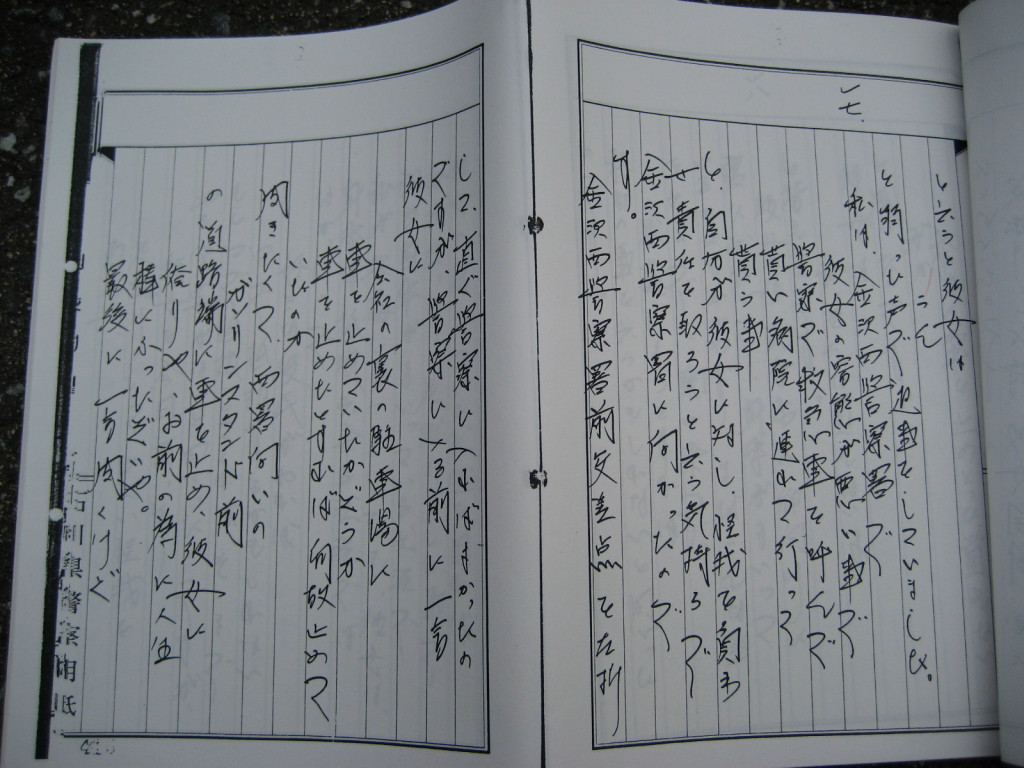 一七.
と言うと彼女は
うん
と弱い声で返事をしていました。
私は、金沢西警察署で
彼女の容態が悪い事で
警察で救急車を呼んで
貰い病院に連れて行って
貰う事
と、自分が彼女に対し、怪我を負わ
せ責任を取ろうと云う気持ちで
金沢西警察署に向かったので
す。
金沢西警察署前交差点を左折
して、直ぐ警察に入ればよかったの
ですが、警察に入る前に一言
彼女に
会社の裏の駐車場に
車を止めていたかどうか
車を止めたとすれば何故止めて
いたのか
聞きたくて、西署向いの
ガソリンスタンド前
の道路端に車を止め、彼女に
俺りゃ、お前の為に人生
棒にふったぞや。
最後に一言聞くけど
石川県警察用紙